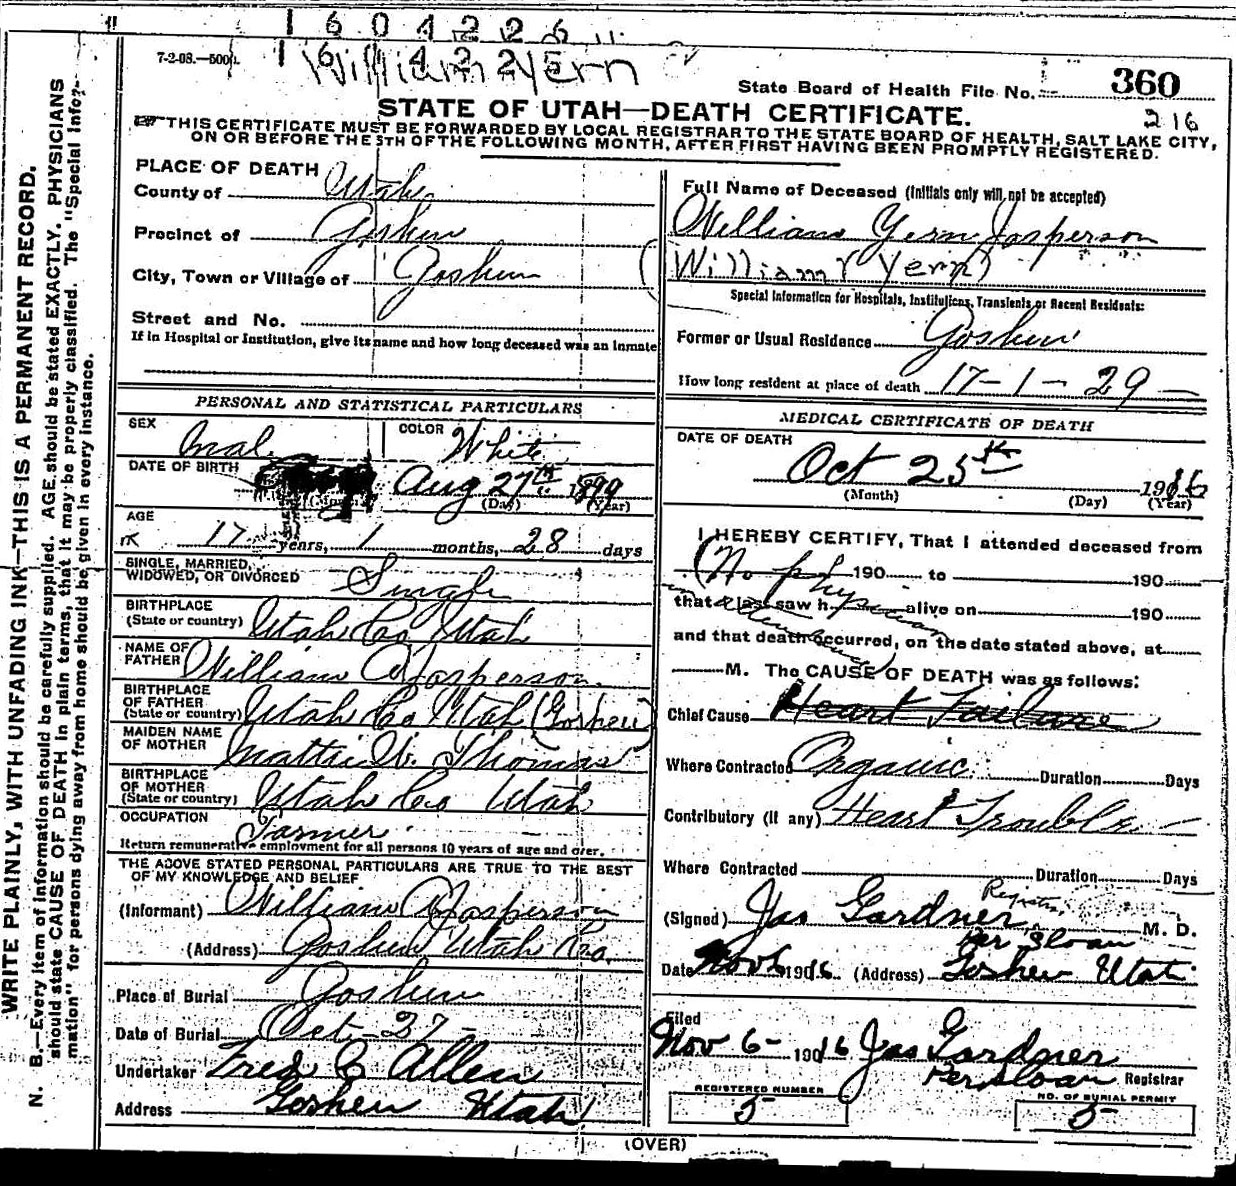 1604226
7-2-08.—500
William Yern
State Board of Health File No. 360
STATE OF UTAH—DEATH CERTIFICATE.
216
THIS CERTIFICATE MUST BE FORWARDED BY LOCAL REGISTRAR TO THE STATE BOARD OF HEALTH, SALT LAKE CITY,
ON OR BEFORE THE 5TH OF THE FOLLOWING MONTH, AFTER FIRST HAVING BEEN PROMPTLY REGISTERED.
WRITE PLAINLY, WITH UNFADING INK—THIS IS A PERMANENT RECORD.
N. B.—Every item of information should be carefully supplied. AGE should be stated EXACTLY. PHYSICIANS
should state CAUSE OF DEATH in plain terms, that it may be properly classified. The "Special Infor-
mation" for persons dying away from home should be given in every instance.
PLACE OF DEATH
County of Utah
Precinct of Goshen
City, Town or Village of Goshen
Street and No.
If in Hospital or Institution, give its name and how long deceased was an inmate
PERSONAL AND STATISTICAL PARTICULARS
SEX Male
COLOR White
DATE OF BIRTH Aug 27th 1899
(Day) (Year)
AGE
17 years, 1 months, 28 days
SINGLE, MARRIED,
WIDOWED, OR DIVORCED Single
BIRTHPLACE
(State or country) Utah Co Utah
NAME OF
FATHER William A Jasperson
BIRTHPLACE
OF FATHER
(State or country) Utah Co Utah (Goshen)
MAIDEN NAME
OF MOTHER Mattie W. Thomas
BIRTHPLACE
OF MOTHER
(State or country) Utah Co Utah
OCCUPATION
Farmer
Return remunerative employment for all persons 10 years of age and over.
THE ABOVE STATED PERSONAL PARTICULARS ARE TRUE TO THE BEST
OF MY KNOWLEDGE AND BELIEF
(Informant) William A Jasperson
(Address) Goshen Utah Co.
Place of Burial Goshen
Date of Burial Oct-27-
Undertaker Fred C Allen
Address Goshen Utah
Full Name of Deceased (Initials only will not be accepted)
William Yern Jasperson
(William Yern)
Special Information for Hospitals, Institutions, Transients or Recent Residents:
Former or Usual Residence Goshen
How long resident at place of death 17-1-29
MEDICAL CERTIFICATE OF DEATH
DATE OF DEATH
Oct 25th 1916
(Month) (Day) (Year)
I HEREBY CERTIFY, That I attended deceased from
(No physician 190 to 190
that I last saw h alive on 190
in attendance)
and that death occurred, on the date stated above, at
M. The CAUSE OF DEATH was as follows:
Chief Cause Heart Failure
Where Contracted Organic Duration Days
Contributory (if any) Heart Trouble
Where Contracted Duration Days
Registrar
(Signed) Jas Gardner M. D.
Per Sloan
Date Nov 6 1916 (Address) Goshen Utah
Filed
Nov 6- 1916 Jas Gardner
Per Sloan Registrar
REGISTERED NUMBER
5
NO. OF BURIAL PERMIT
5
(OVER)